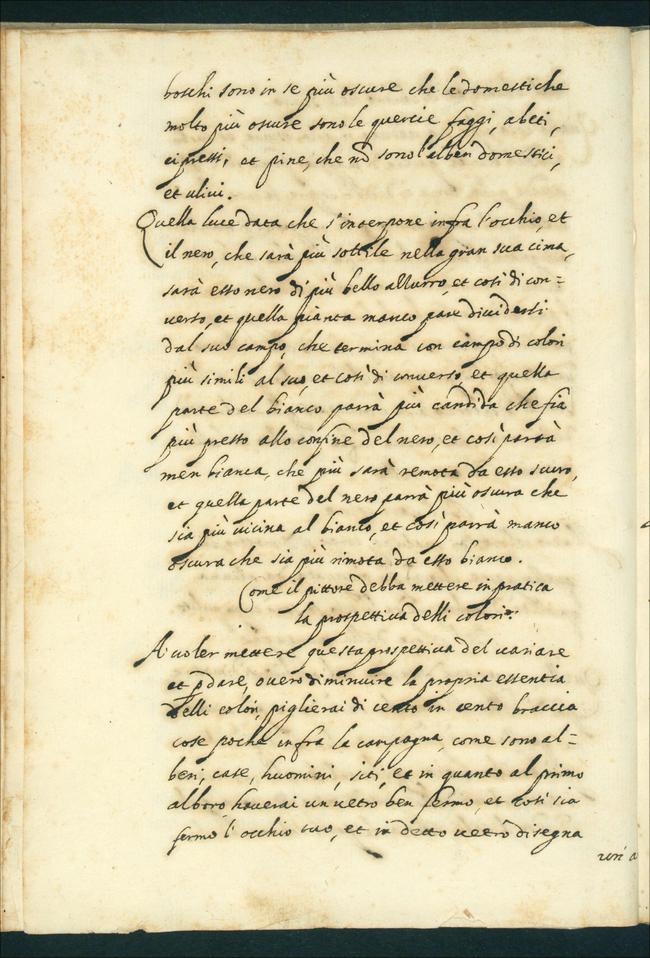 boschi sono in se più oscure che le domestiche
molto più oscure sono le quercie faggi, abeti,
cipressi, et pine, che nõ sono l'alberi domestici,
et ulivi.
Quella luce data che s'interpone infra l'occhio, et
il nero, che sarà più sottile nella gran sua cima,
sarà esso nero di più bello allurro, et così di con=
verso, et quella pianta manco pare dividersi
dal suo campo, che termina con campo di colori
più simili al suo, et così di converso, et quella
parte del bianco parrà più candida che fia
più presso allo confine del nero, et così parrà
men bianca, che più sarà remota da esso scuro,
et quella parte del nero parrà più oscura che
sia più vicina al bianco, et così parrà manco
oscura che sia più rimota da esso bianco.
Come il pittore debba mettere in pratica
la prospettiva delli colori.
A' voler mettere questa prospettiva del variare
et pdare, overo diminuire la propria essentia
delli colori, piglierai di cento in cento braccia
cose poche infra la campagna, come sono al=
beri, case, huomini, siti, et in quanto al primo
alboro haverai un vetro ben fermo, et così sia
fermo l'occhio tuo, et in detto vetro disegna